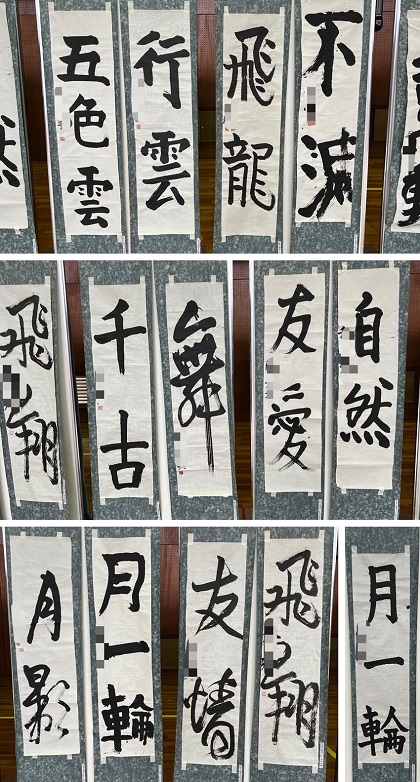 五色雲
行雲
飛龍
不滅
飛翔
千古
舞
友愛
自然
月影
月一輪
友情
飛翔
月一輪